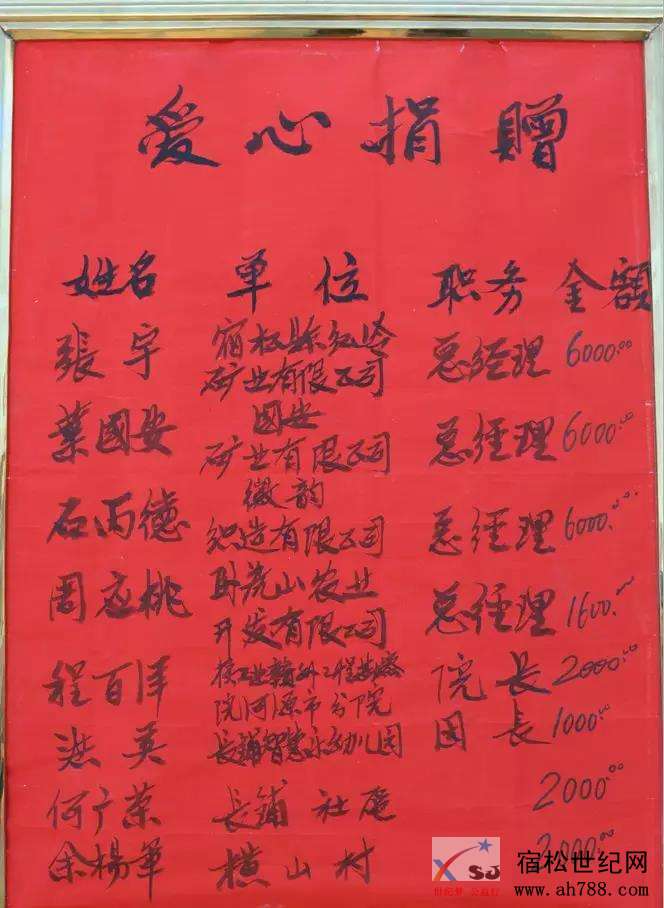 爱心捐赠
姓名 单位 职务 金额
張宇 宿松县红 总经理 6000.00
矿业有限公司
葉國安 国安 总经理 6000.00
矿业有限公司
石丙德 徽韵 总经理 6000.00
织造有限公司
周应桃 卧龙山农业 总经理 1600.00
开发有限公司
程百 核工业赣 工程 院长 2000.00
院河源市分院
洪英 长铺智慧 幼儿园 园长 1000.00
何广荣 長鋪社 2000.00
余楊 横山村 2000.00
XSJ
世纪梦 公益行
宿松世纪网
www.ah788.com